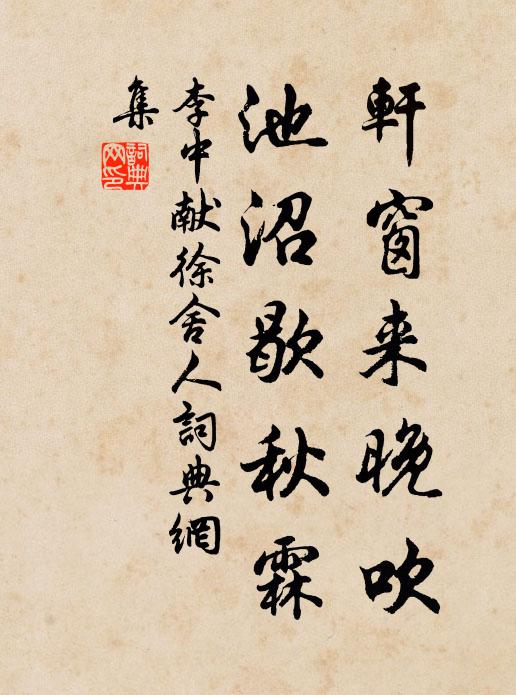 軒窗来晚吹
池沼歇秋霖
李中献徐舍人詞典網
集
詞典
网印